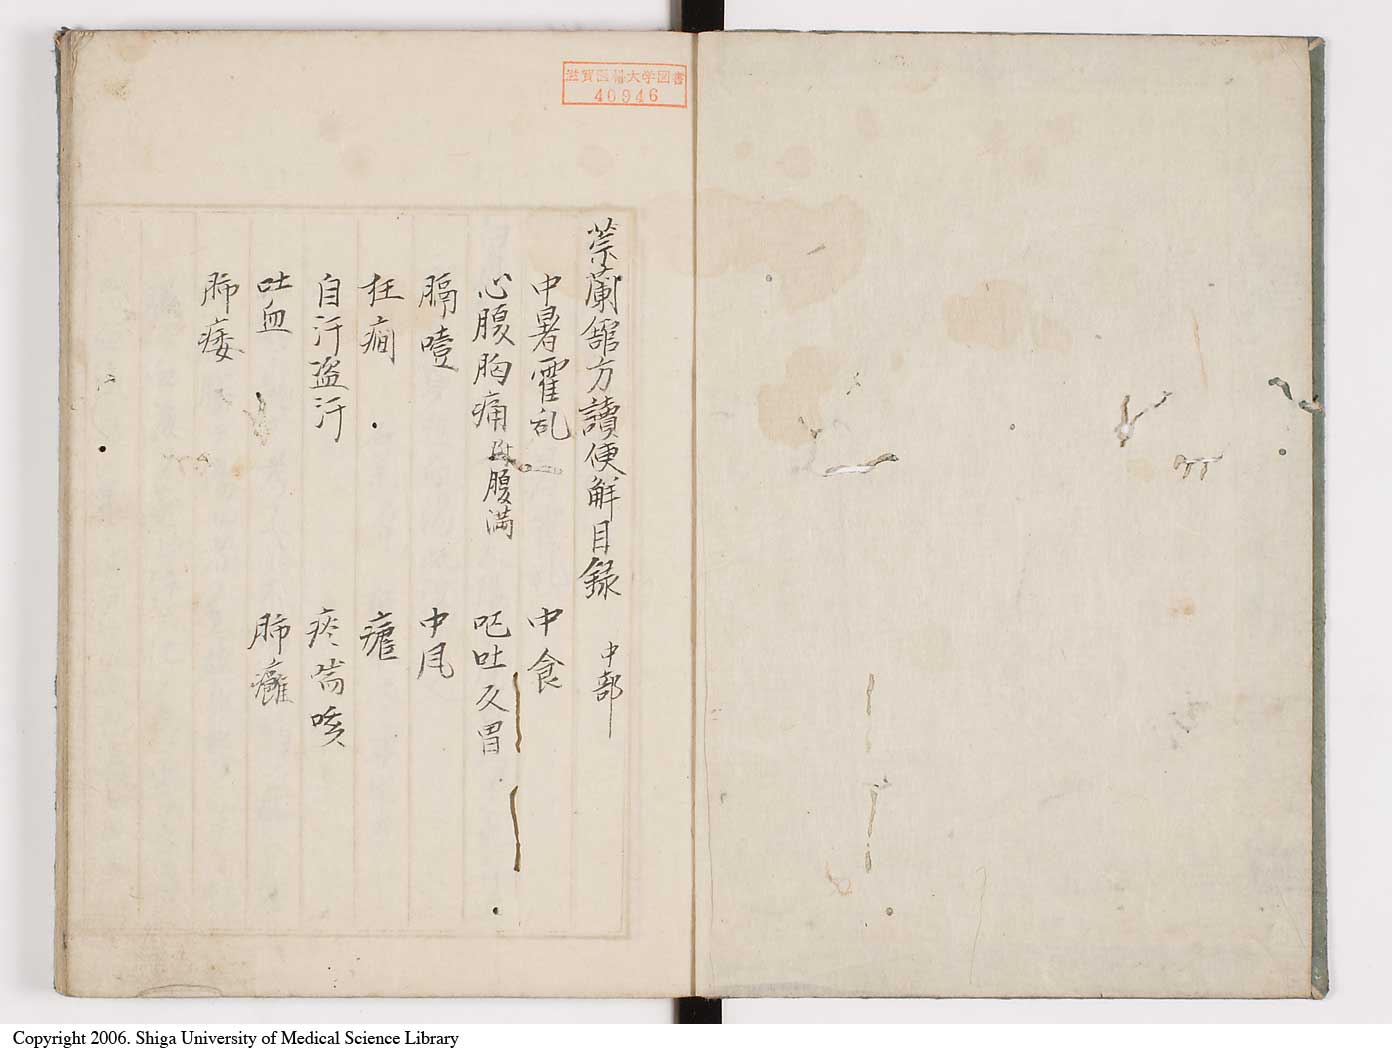 滋賀医科大学図書
40946
崇蘭館方讀便解目録　中部
中暑霍乱　中食
心腹胸痛 附腹満　呕吐反胃
膈噎　中風
狂癇　瘧
自汗盗汗　痰喘咳
吐血　肺癰
肺痿
Copyright 2006. Shiga University of Medical Science Library